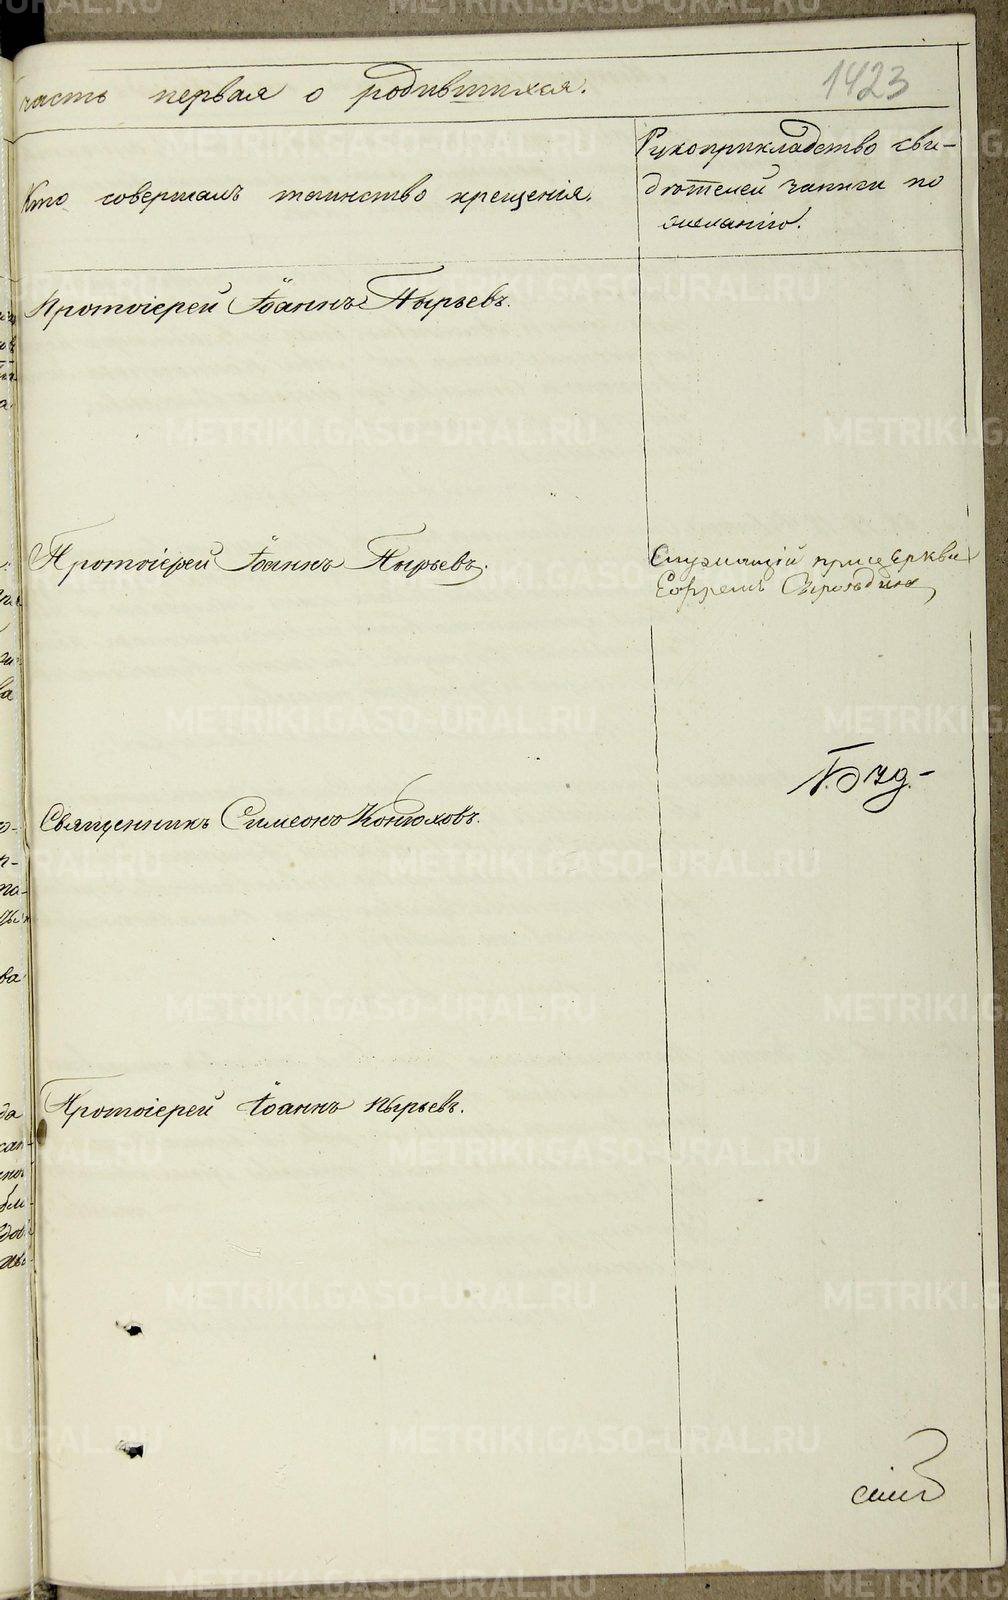 часть первая о родившихся.
1423
Кто совершалъ таинство крещенія.
Рукоприкладство сви-
дѣтелей записи по
желанію.
Протоіерей Іоаннъ Пырьевъ.
Протоіерей Іоаннъ Пырьевъ.
Служащій при церкви
Ефремъ
Священникъ Симеонъ Конюховъ.
Протоіерей Іоаннъ Пырьевъ.
METRIKI.GASO-URAL.RU